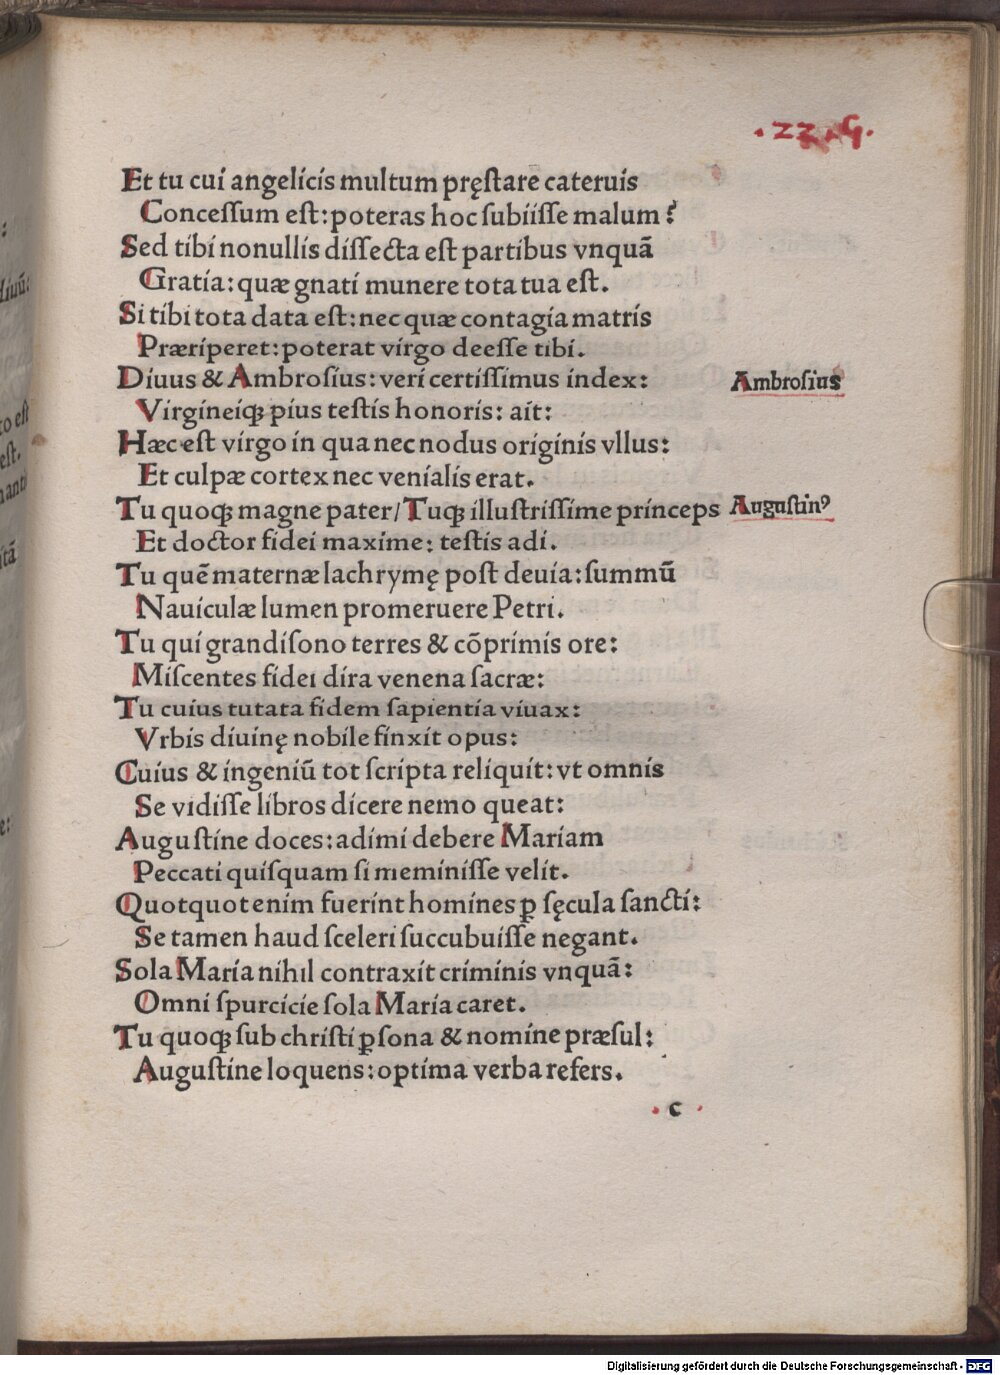 .22.G.
Et tu cui angelicis multum pręſtare cateruis
Conceſſum eſt: poteras hoc ſubiiſſe malum?
Sed tibi nonullis diſſecta eſt partibus vnquā
Gratia: quæ gnati munere tota tua eſt.
Si tibi tota data eſt: nec quæ contagia matris
Præriperet: poterat virgo deeſſe tibi.
Diuus & Ambroſius: veri certiſſimus index:
Ambroſius
Virgineiqꝫ pius teſtis honoris: ait:
Hæc eſt virgo in qua nec nodus originis vllus:
Et culpæ cortex nec venialis erat.
Tu quoqꝫ magne pater/ Tuqꝫ illuſtriſſime princeps
Auguſtinꝰ
Et doctor fidei maxime: teſtis adi.
Tu quē maternæ lachrymę poſt deuia: ſummū
Nauiculæ lumen promeruere Petri.
Tu qui grandiſono terres & cōprimis ore:
Miſcentes fidei dira venena ſacræ:
Tu cuius tutata fidem ſapientia viuax:
Vrbis diuinę nobile finxit opus:
Cuius & ingeniū tot ſcripta reliquit: vt omnis
Se vidiſſe libros dicere nemo queat:
Auguſtine doces: adimi debere Mariam
Peccati quiſquam ſi meminiſſe velit.
Quotquot enim fuerint homines ꝑ ſęcula ſancti:
Se tamen haud ſceleri ſuccubuiſſe negant.
Sola Maria nihil contraxit criminis vnquā:
Omni ſpurcicie ſola Maria caret.
Tu quoqꝫ ſub chriſti ꝑſona & nomine præſul:
Auguſtine loquens: optima verba refers.
.c.
Digitalisierung gefördert durch die Deutsche Forschungsgemeinschaft - DFG